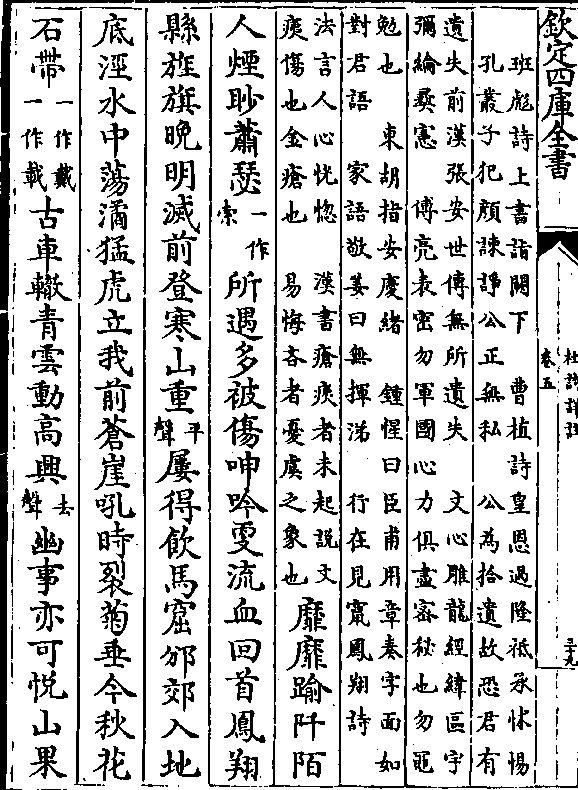 欽定四庫全書
杜詩詳註
卷五
三十九
班彪詩上書詣闕下 曹植詩皇恩過隆祗承怵惕
孔叢子犯顏諫諍公正無私 公為拾遺故恐君有
遺失前漢張安世傳無所遺失 文心雕龍經緯區宇
彌綸彝憲 傅亮表密勿軍國心力俱盡密秘也勿黽
勉也 東胡指安慶緒 鍾惺曰臣甫用章奏字面如
對君語 家語敬姜曰無揮涕 行在見竄鳳翔詩
法言人心恍惚 漢書瘡痍者未起説文
痍傷也金瘡也 易悔吝者憂虞之象也
靡靡踰阡陌
人煙眇蕭瑟一作索所遇多被傷呻吟更流血回首鳳翔
縣旌旗晚明滅前登寒山重平聲屢得飲馬窟邠郊入地
底涇水中蕩潏猛虎立我前蒼崖吼時裂菊垂今秋花
石帶一作戴一作載古車轍青雲動高興去聲幽事亦可悅山果